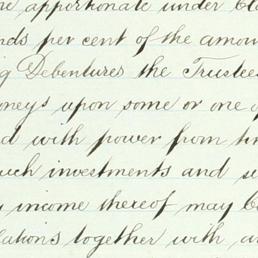 apportionate under Cla
nds per cent of the amou
g Debentures the Trustees
oneys upon some or one o
d with power from tim
uch investments and se
income thereof may be
lations together with a